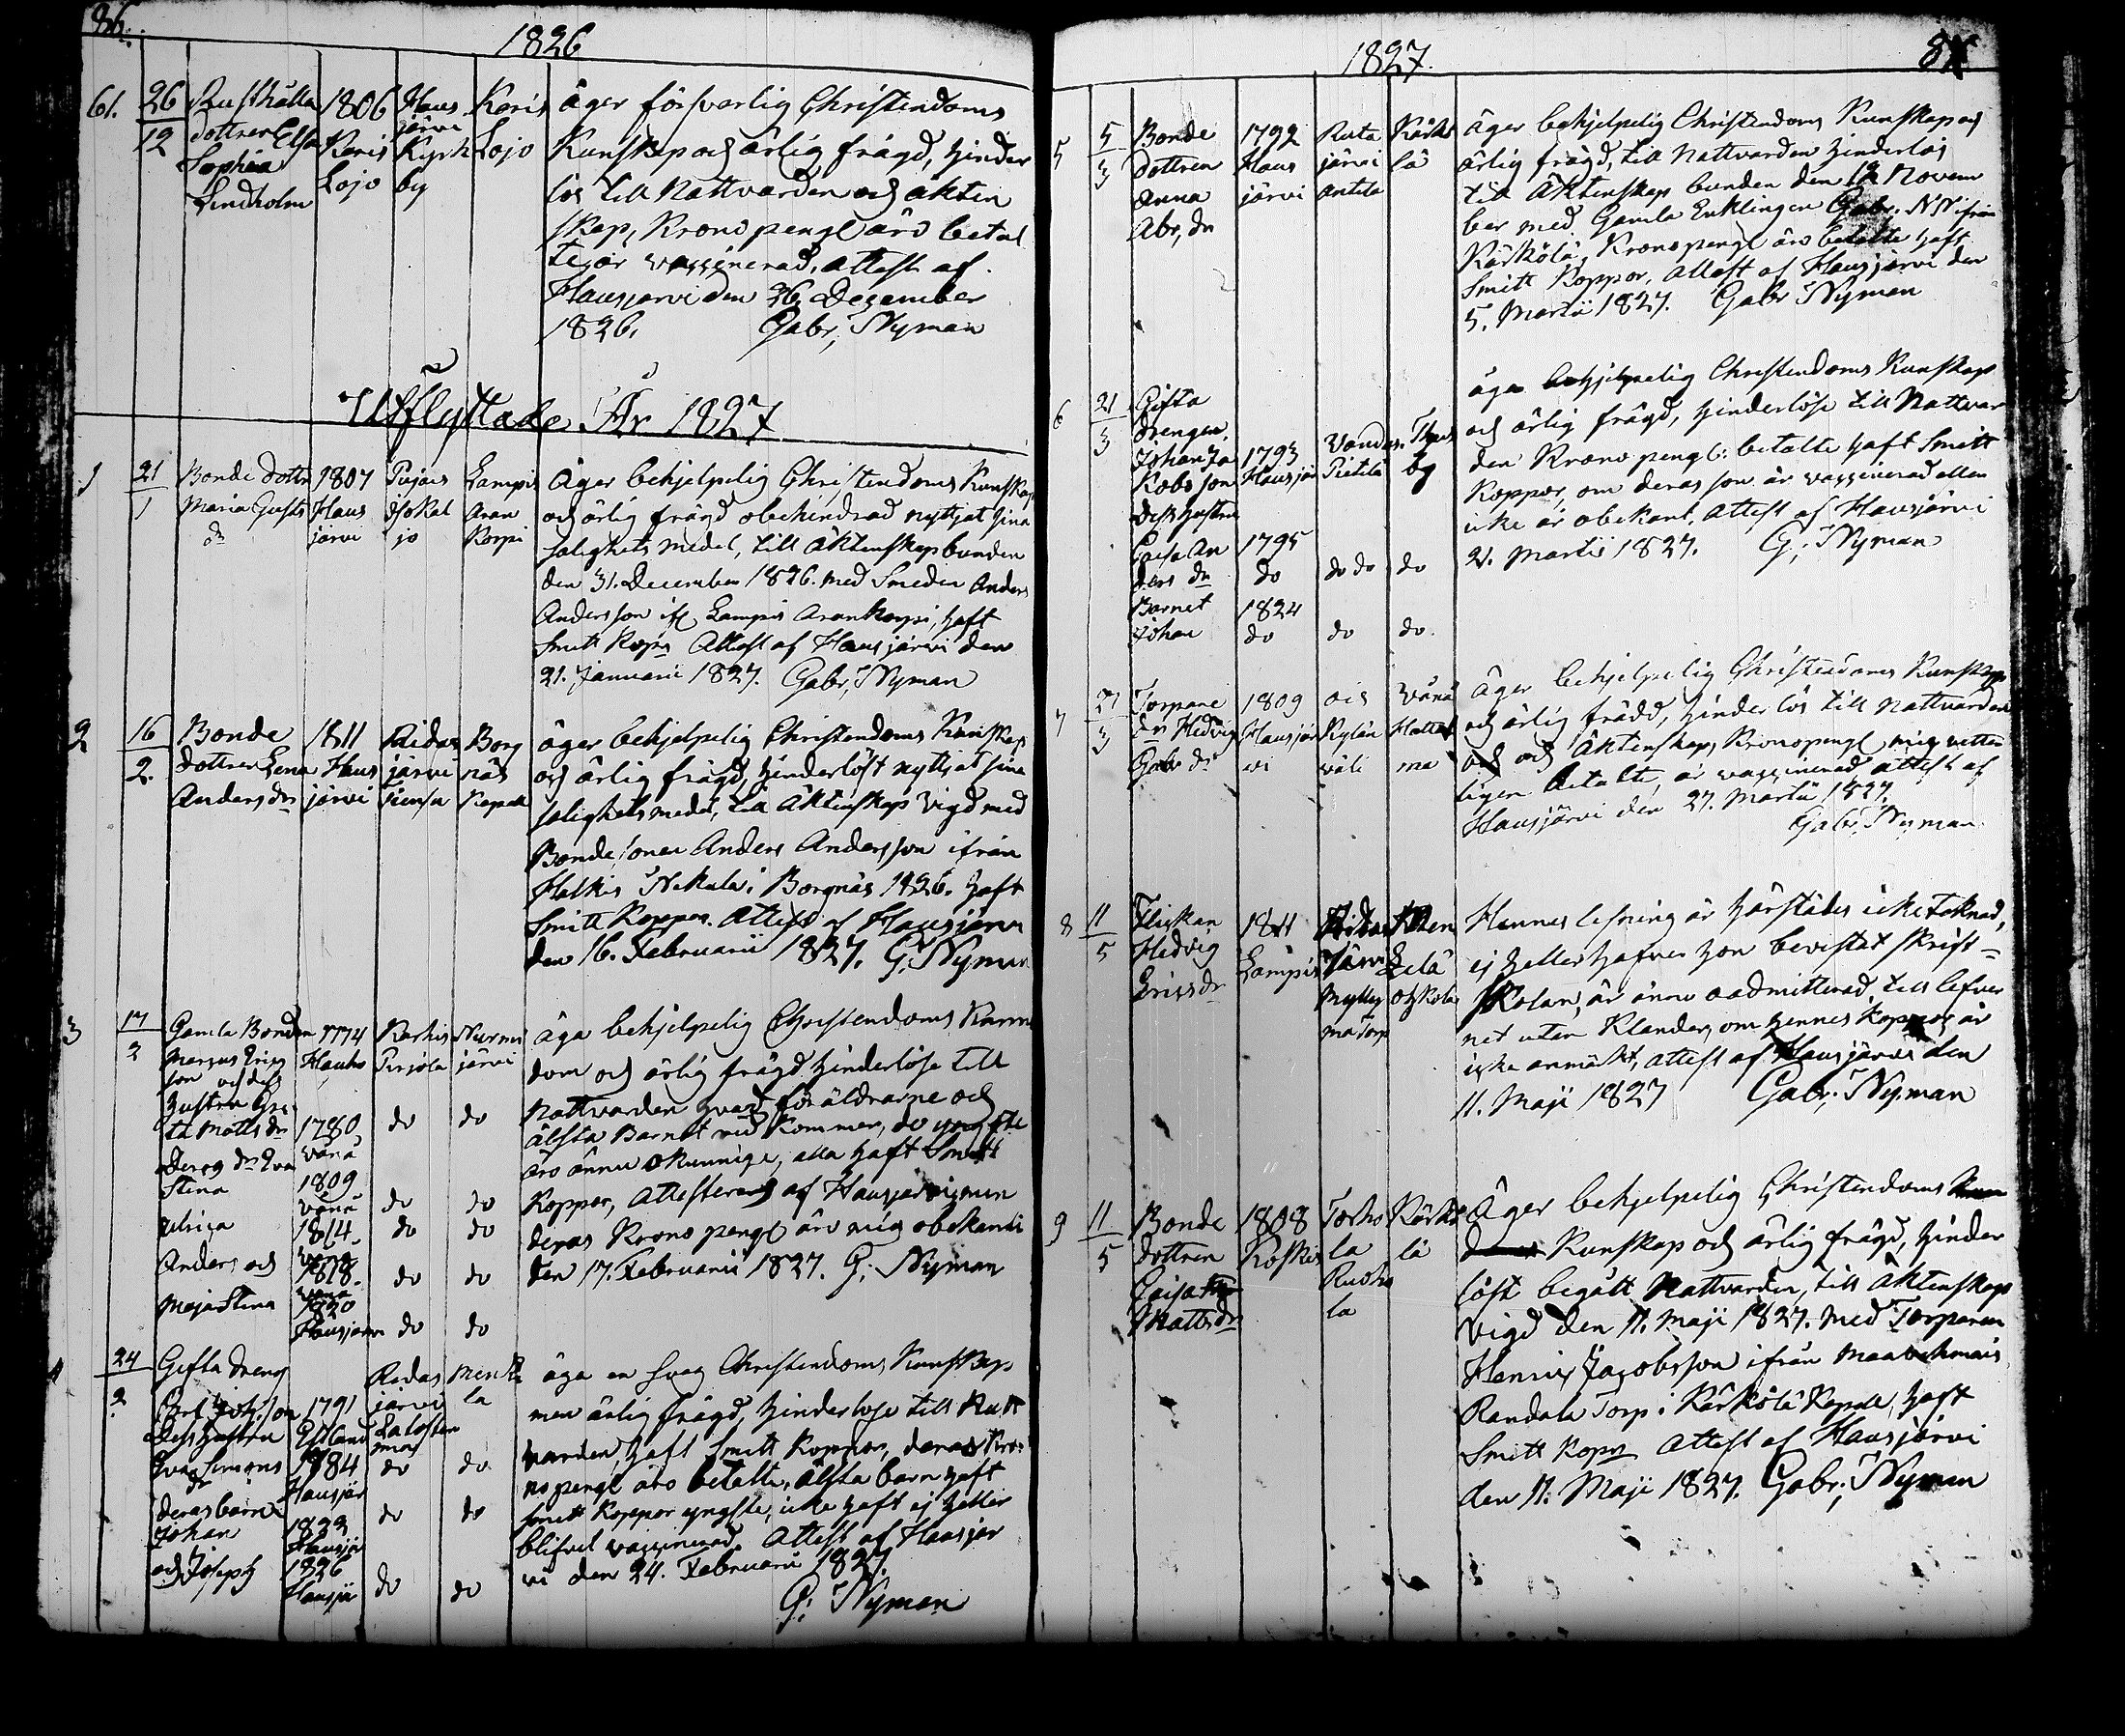 86.
1826
61. 26/12 Rusthålla 1806 Haus Karis äger försvarlig Christendoms
dottren Elsa Karis järvi Lojo Kunskap och ärlig frägd, hinder
Sophia Lojo Kyrk lös till Nattvarden och äkten
Lindholm by skap, Krono pengl äro betal
te, är vaxxinerad, attest af
Hausjärvi den 26 Dezember
1826. Gabr; Nyman
Utflyttade År 1827
1 21/1 Bonde dottr 1807 Lampis Äger behjelpelig Christendoms Kunskap
Maria Gusts Haus Aran och ärlig frägd obehindrad nyttjat sina
dr järvi jo Korpi salighets medel, till äktenskap bunden
den 31. December 1826. med Smeden Anders
Andersson ifr Lampis Arankorpi, haft
Smitt Kopr Attest af Hausjärvi den
21. Januarii 1827. Gabr; Nyman
2 16/2. Bonde 1811 Ridas Borg äger behjelpelig Christendoms Kunskap
dottren Lena Haus järvi näs och ärlig frägd, hinderlöst nyttjat sina
Anders dr järvi Kapell salighets medel, till äktenskap Vigd med
Bonde sonen Anders Andersson ifrån
Halkis Nikula i Borgnäs 1826. haft
Smitt Koppor. Attest af Hausjärvi
den 16. Februarii 1827. G; Nyman
3 17/2 Gamla Bonden 1774 Karhis Nurmi äga behjelpelig Christendoms Kunn
Marcus Erics Hauho Pirjola järvi dom och ärlig frägd hinderlöse till
son och dess
hustru Gre Nattvarden hvad föräldrarne och
ta Matts dr 1780 do do älsta Barnet vid kommer, de yngste
Deras dr Eva Vånå äro ännu okunnige, alla haft Smitt
Stina 1809 Vånå do do Koppor, attesteras af Hausjärvi, men
Ulrica 1814. do do deras Krono pengl äro mig obekanta
Anders och 1818. do do den 17. Februarii 1827. G; Nyman
Maja Stina 1820
Hausjärvi do do
4 24/2 Gifta dreng Ridas Mentz äga en svag Christendoms Kunskap
1791 järvi la men ärlig frägd, hinderlöse till Natt
Dess hustru Estland
Eva Simons 1784 do do varden, haft Smitt Koppor, deras Kro
dr Hausjär no pengl äro betalte, älsta barn haft
deras barn do do smitt Koppor yngste, icke haft ej heller
Johan 1822 Hausjär blifvit vaxxinerad. Attest af Hausjär
och Joseph 1826 vi den 24. Februarii 1827.
Hausjär do do G; Nyman
1827.
87
5 5/3 Bonde 1792 Ruta Kärkö äger behjelpelig Christendoms Kunskap och
dottren Haus järvi lä ärlig frägd, till Nattvarden hinderlös
Anna järvi Antila till Äktenskap bunden den 12 Novem
Abr; dr ber med Gamla Enklingen Gabr. N N ifrån
Kärkölä, Kronopengl äro betalte haft
Smitt Koppor, attest af Hausjärvi den
5. Martii 1827. Gabr Nyman
6 21/3 Gifta äga behjelpelig Christendoms Kunskap
drengen, och ärlig frägd, hinderlöse till Nattvar
Johan Ja 1793 Vandas. by den Krono pengl: betalte haft Smitt
kobs son Hausjär Pietilä Koppor, om deras son är vaxxinerad eller
Dess hustru icke är obekant, Attest af Hausjärvi
Caisa An 1795 21. Martii 1827. G; Nyman
ders dr do do do do
Barnet 1824
Johan do do do
7 27/3 Torpare 1809 Vånå äger behjelpelig Christendoms Kunskap
dr Hedvig Hausjär Kylän och ärlig frädd, hinder lös till nattvarden
Gabr dr vi väli ma och Äktenskap, Kronopengl mig vetter
ligen betalte, är vaxxinerad attest af
Hausjärvi den 27. Martii 1827.
Gabr; Nyman
8 11/5 Flickan 1811 Hennes lesning är härstädes icke teknad,
Hedvig Lampis järvi ej heller hafver hon bevistat skrift-
Ericsdr Mylly skolan, är ännu oadmitterad, till lefver
ma Torp net utan Klander, om hennes Koppor är
icke anmärkt, attest af Hausjärvi den
11. Maji 1827 Gabr; Nyman
9 11/5 Bonde 1808 Torho Kärkö Äger behjelpelig Christendoms
dottren Koskis la lä Kunskap och ärlig frägd, hinder
Caisa löst begått Nattvarden, till Äktenskap
Matts dr la Vigd den 11. Maji 1827. med Torparen
Henric Jacobsson ifrån
Randala Torp i Kärkölä Kapell, haft
Smitt Kopr Attest af Hausjärvi
den 11. Maji 1827. Gabr; Nyman